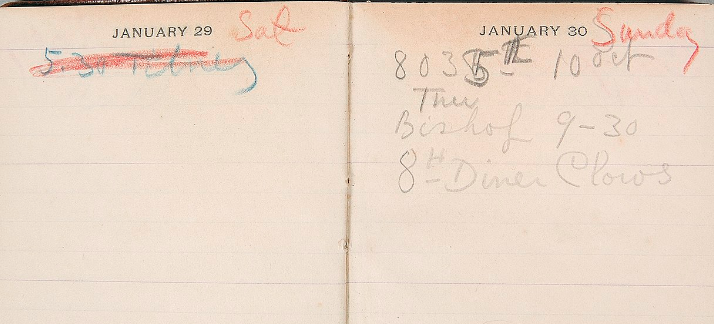 JANUARY 29 Sat
5.30
JANUARY 30 Sunday
8035 10 oct
Thu
Bishof 9-30
8H Diner Clows